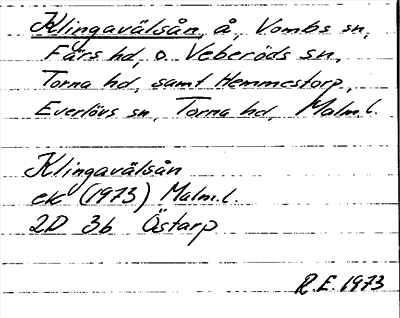 Klingavälsån, å, Vombs sn,
Färs hd, o. Veberöds sn,
Torna hd, samt Hemmestorp,
Everlövs sn, Torna hd, Malm.l.
Klingavälsån
ek (1973) Malm.l.
2D 3b Östarp
R.E. 1973